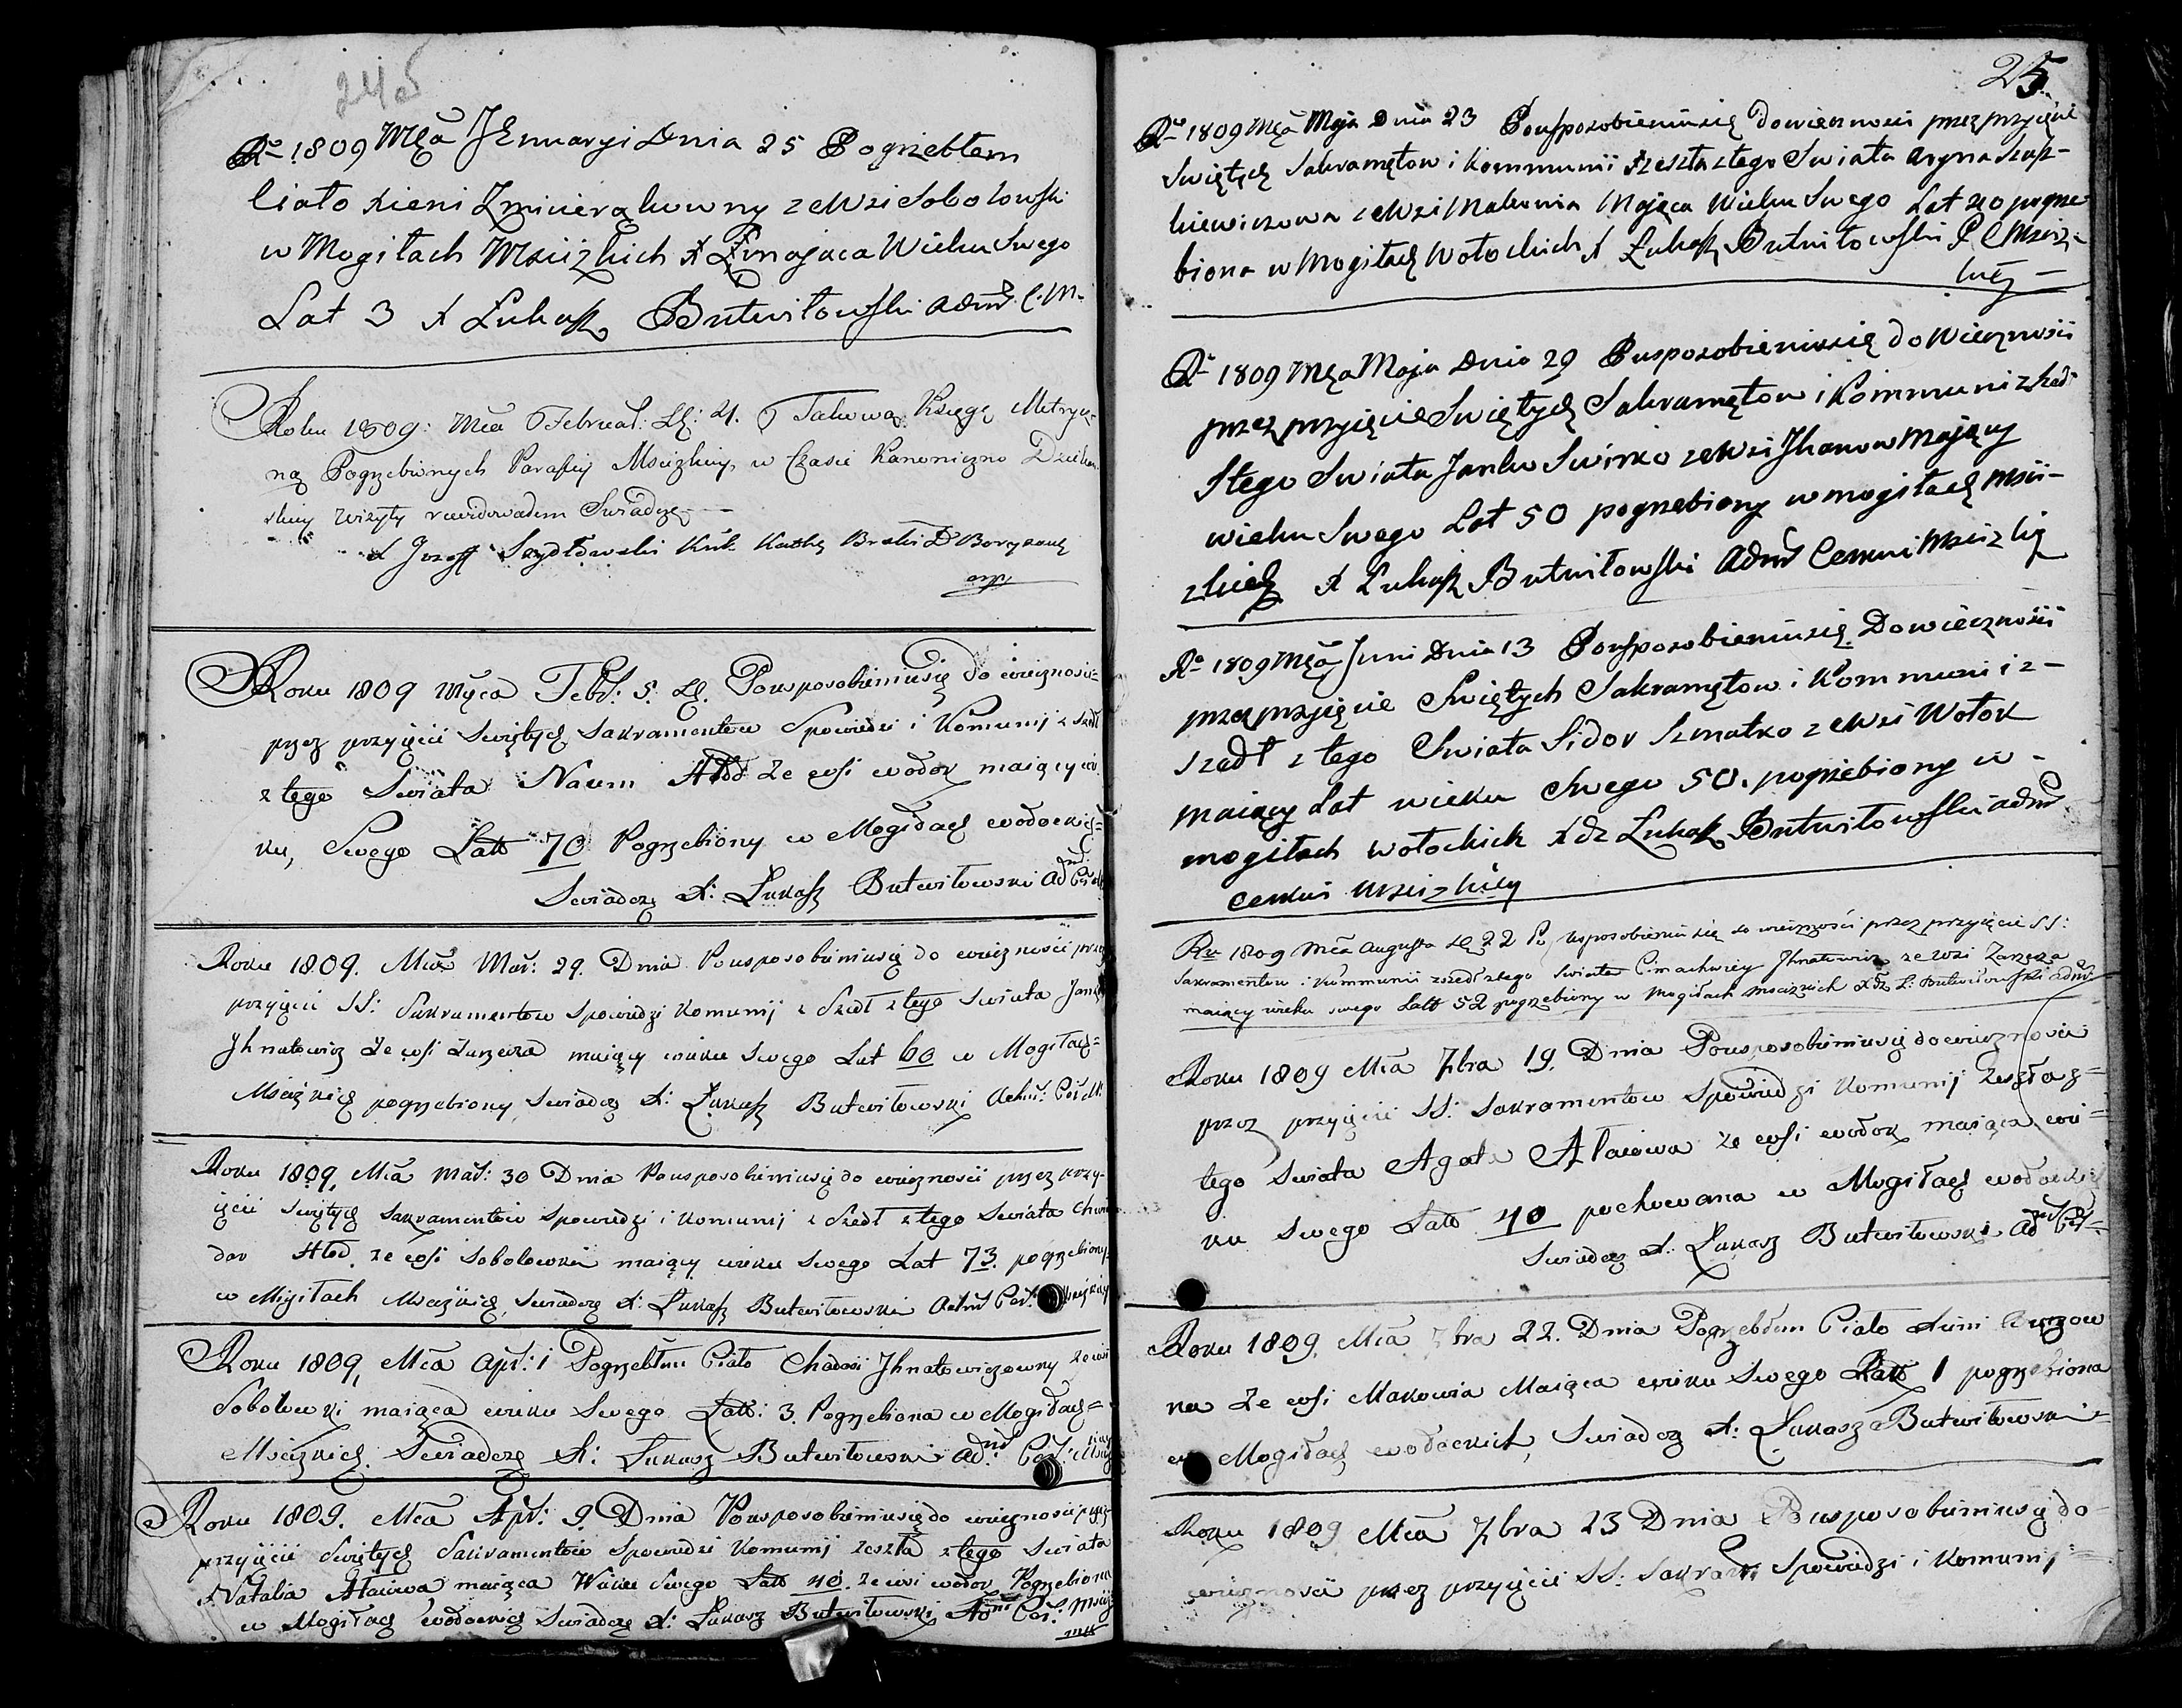 245
Ru 1809 Mca Jenuaryi Dnia 25 Pogrzebłem
Ciało Xieni Zmicierąkuwny ze Wsi Sobolowski
w Mogiłach Mscizkich X Zmająca Wieku Swego
Lat 3 X Łukasz Butwiłowski Adm C. M.
Roku 1809: Mca Februar: 4. Takową Księgę Metrycz-
ną Pogrzebionych Parafij Mscizkiey, w Czasie Kanoniczno Dziekan
skiey Wizyty rewidowałem Swiadczę
X Jozeff Szydłowski
Roku 1809 Myca Febr: 5. Pousposobieniusię do wiecznosci=
przez przyięcie Swiętych Sakramentow Spowiedzi i Komunij z Szedł
z tego Swiata Naum Atład ze wsi wołok maiący wie
ku, Swego Latt 70 Pogrzebiony w Mogiłach wołockich=
Swiadczę X: Łukasz Butwiłowski Ad
Roku 1809. Mca Mar: 29. Dnia Pousposobieniusię do wiecznosci przez
przyięcie SS: Sakramentow Spowiedzi Komunij z Szedł z tego Swiata Janko
Jhnatowicz ze wsi Zarzecza maiący wieku Swego Lat 60 w Mogiłach=
Mscizkich pogrzebiony, Swiadczę X: Łukasz Butwiłowski Adm:
Roku 1809, Mca Mar: 30 Dnia Pousposobieniusię do wiecznosci przez przy-
ięcie Swiętych Sakramentow Spowiedzi i Komunij z Szedł z tego Swiata Chwie
dor Atład. ze wsi Sobolowki maiący wieku Swego Lat 73. pogrzebiony=
w Mogiłach Mscizkich, Swiadczę X: Łukasz Butwiłowski Adm
Roku 1809, Mca Apr: 1 Pogrzebłem Ciało Chadosi Jhnatowiczowny ze wsi
Sobolowki maiąca wieku Swego Latt: 3. Pogrzebiona w Mogiłach=
Mscizkich. Swiadczę X: Łukasz Butwiłowski Ad:
Roku 1809. Mca Apr: 9. Dnia Pousposobieniusię do wiecznosci przez
przyięcie Swiętych Sakramentow Spowiedzi Komunij zeszła z tego Swiata
Natalia Ataiowa maiąca Wieku Swego Latt 40. ze wsi wołok Pogrzebiona
w Mogiłach wołockich Swiadczę X: Łukasz Butwiłowski
25
Ru 1809 Mca Maja Dnia 23 Pousposobieniusię do wiecznosci przez przyięcie
Swiętych Sakramętow i Kommunii zeszła z tego Swiata Aryna Szusz-
kiewiczowa ze Wsi Makowia Mająca Wieku Swego Lat 40 pogrze
biona w Mogiłach Wołockich X Łukasz Butwiłowski P C Mscisz-
kiey
Ru 1809 Mca Maja Dnia 29 Pusposobieniusię do Wiecznosci
przez przyięcie Swiętych Sakramętow i Kommuni zszed
Stego Swiata Janko Swirko ze Wsi Jhanow Mający
wieku Swego Lat 50 pogrzebiony w mogiłach Msci-
zkich X Łukasz Butwiłowski Adm Cerkwi Mscizkiy
Ru 1809 Mca Juni Dnia 13 Pousposobieniusię Do wiecznosci
przez przyięcie Swiętych Sakramętow i Kommuni z-
szedł z tego Swiata Sidor Szmatko ze Wsi Wołok
maiący Lat wieku Swego 50. pogrzebiony w-
mogiłach wołockich Xdz Łukasz Butwiłowski adm
cerkwi mscizkiey
Ru 1809 Mca Augusta 22 Po Usposobieniusię do wieczności przez przyięcie SS:
Sakramentow i Kommunii zszedł z tego Swiata Cimachwiey Jhnatowicz ze Wsi Zarzecza
maiący wieku swego Latt 52 pogrzebiony w Mogiłach Mscizkich Xdz Ł: Butwiłowski adm
Roku 1809 Mca 7bra 19. Dnia Pousposobieniusię do wiecznosci
przez przyięcie SS: Sakramentow Spowiedzi Komunij Zeszła z=
tego Swiata Agata Ataiowa ze wsi wołok maiąca wie=
ku Swego Latt 40 pochowana w Mogiłach wołockich
Swiadczę X: Łukasz Butwiłowski Ad
Roku 1809, Mca 7bra 22. Dnia Pogrzebłem Ciało
na ze wsi Makowia Maiąca wieku Swego Latt 1 pogrzebiona
w Mogiłach wołockich, Swiadczę X: Łukasz Butwiłowski=
Roku 1809 Mca 7bra 23 Dnia Pousposobieniusię do-
wiecznosci przez przyięcie SS: Sakram Spowiedzi i Komunij=